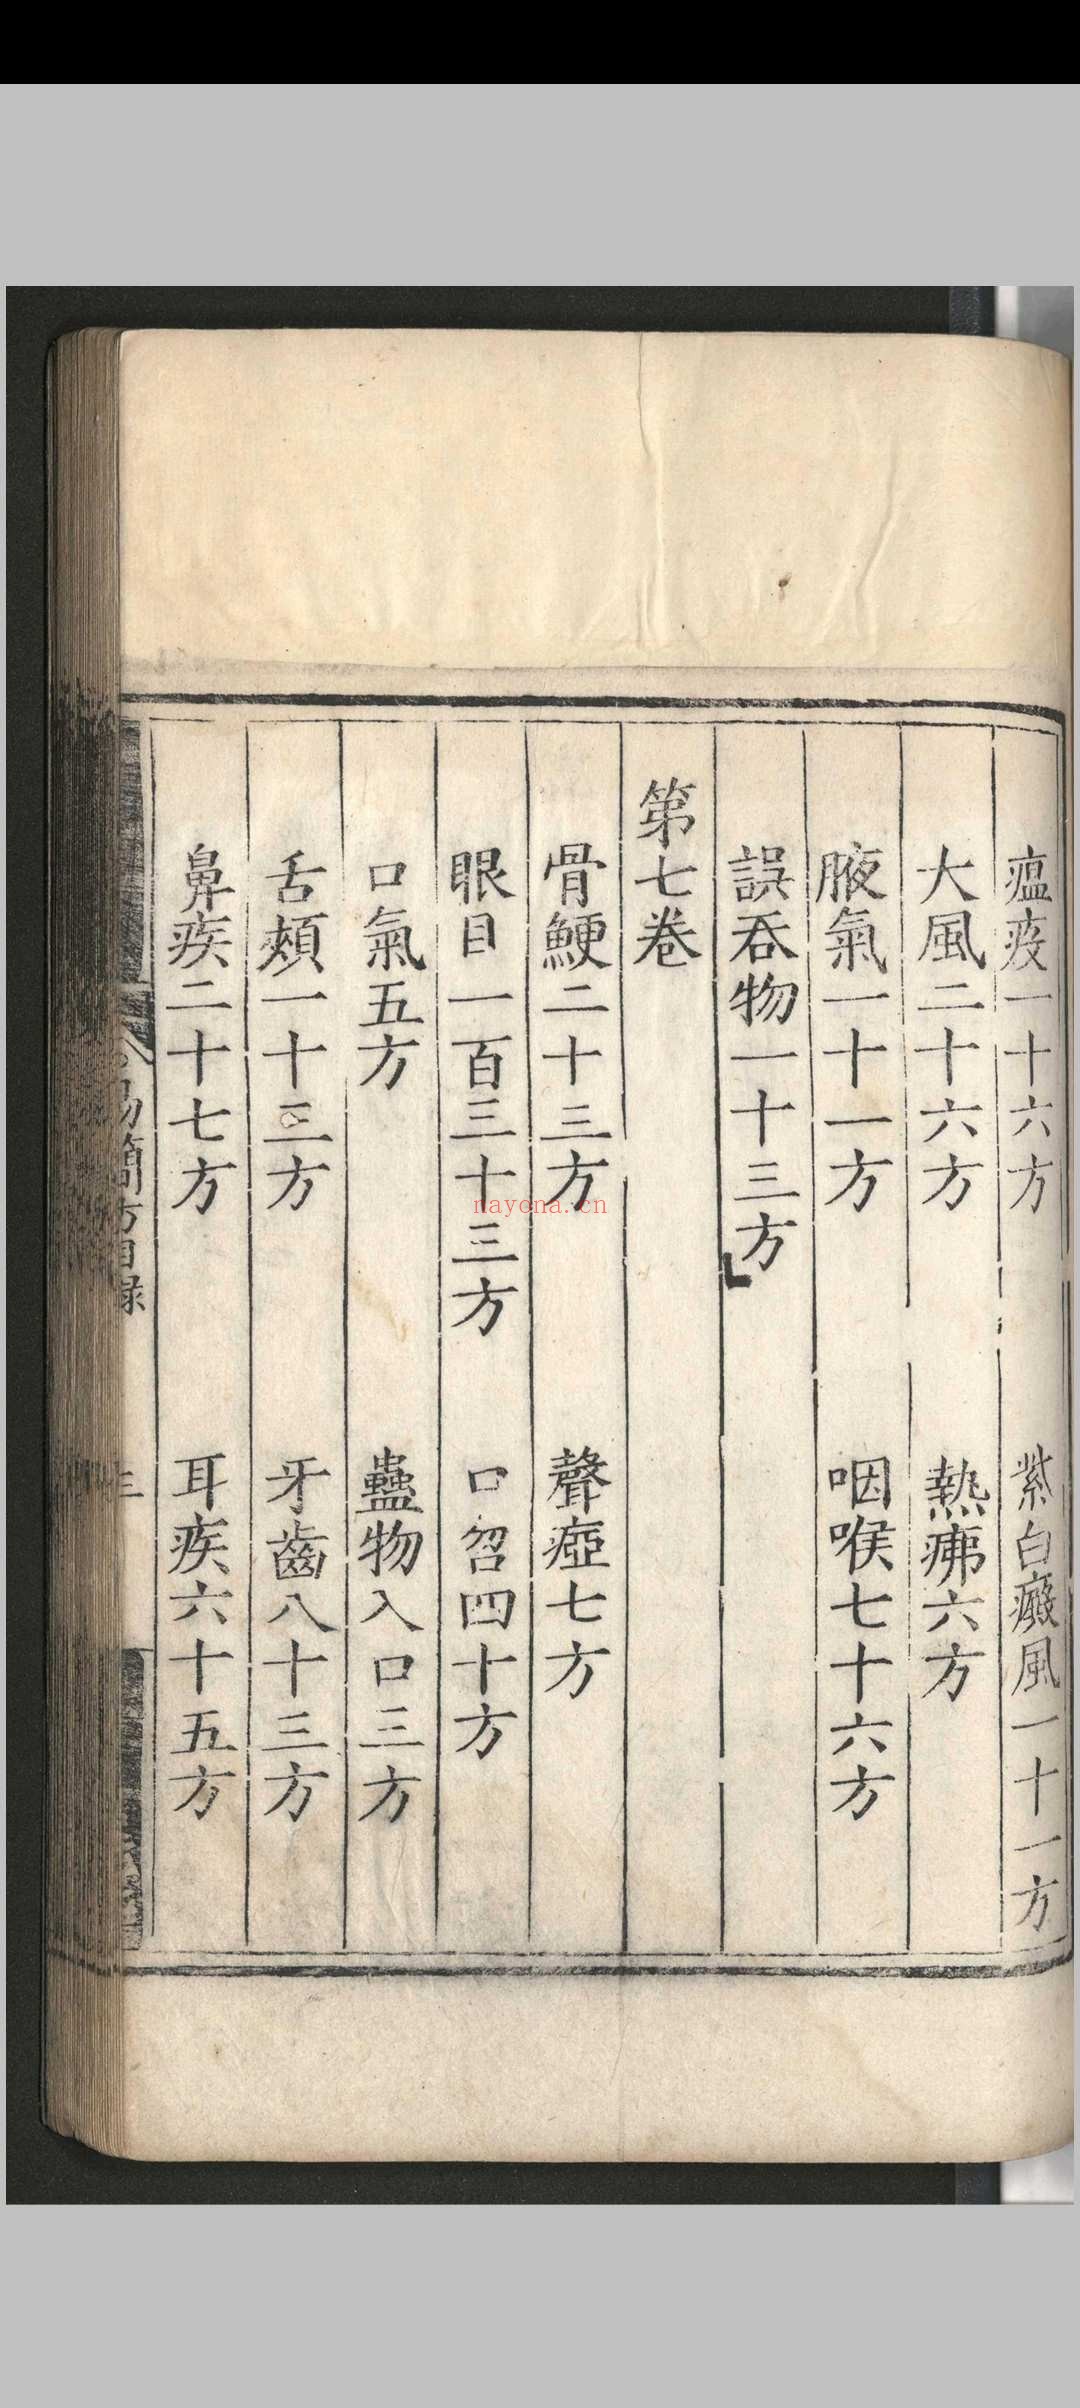 瘟疫一十六方　紫白癜風一十一方
大風二十六方　熱痱六方
腋氣一十一方　咽喉七十六方
誤吞物一十三方
第七卷
骨鯁二十三方　聲瘂七方
眼目一百三十三方　口㕯四十方
口氣五方　蠱物入口三方
舌頰一十三方　牙齒八十三方
鼻疾二十七方　耳疾六十五方
易簡方目録
三
nayona.cn